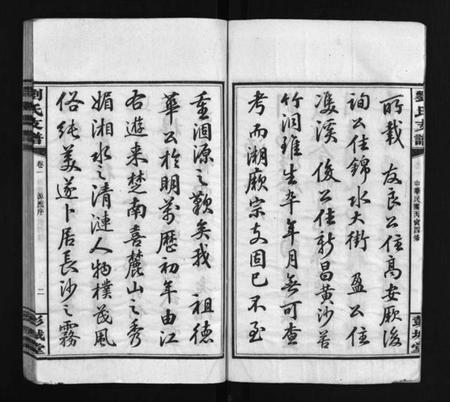 劉氏支譜
中華民國丙寅四修
彭城堂
所載　友良公住高安厥後
詢公住錦水大街　盈公住
雙溪　俊公住新昌黃沙苦
竹洞雖生卒年月無可查
考而溯厥宗支固已不至
重涸源之歎矣我　祖德
華公於明萬歷初年由江
右遊來楚南喜麓山之秀
媚湘水之清漣人物樸茂風
俗純美遂卜居長沙之霧
劉氏支譜
卷一　源流序
二
彭城堂